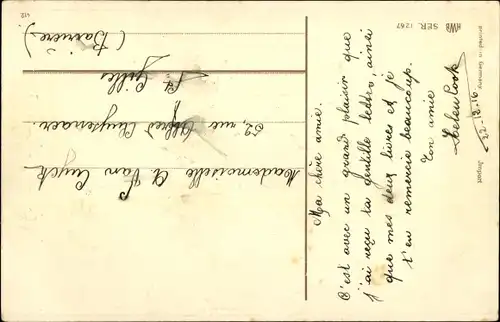 HWB SER. 1267
printed in Germany
Import
412
22-12-16
Ma chère amie.
C'est avec un grand plaisir que
j'ai reçu ta gentille lettre, ainsi
que mes deux livres et je
t'en remercie beaucoup.
Ton amie
Helen Cook
Mademoiselle A. Van Cuyck
52, rue Alfred Cluysenaer.
St. Gilles
(Barrière)